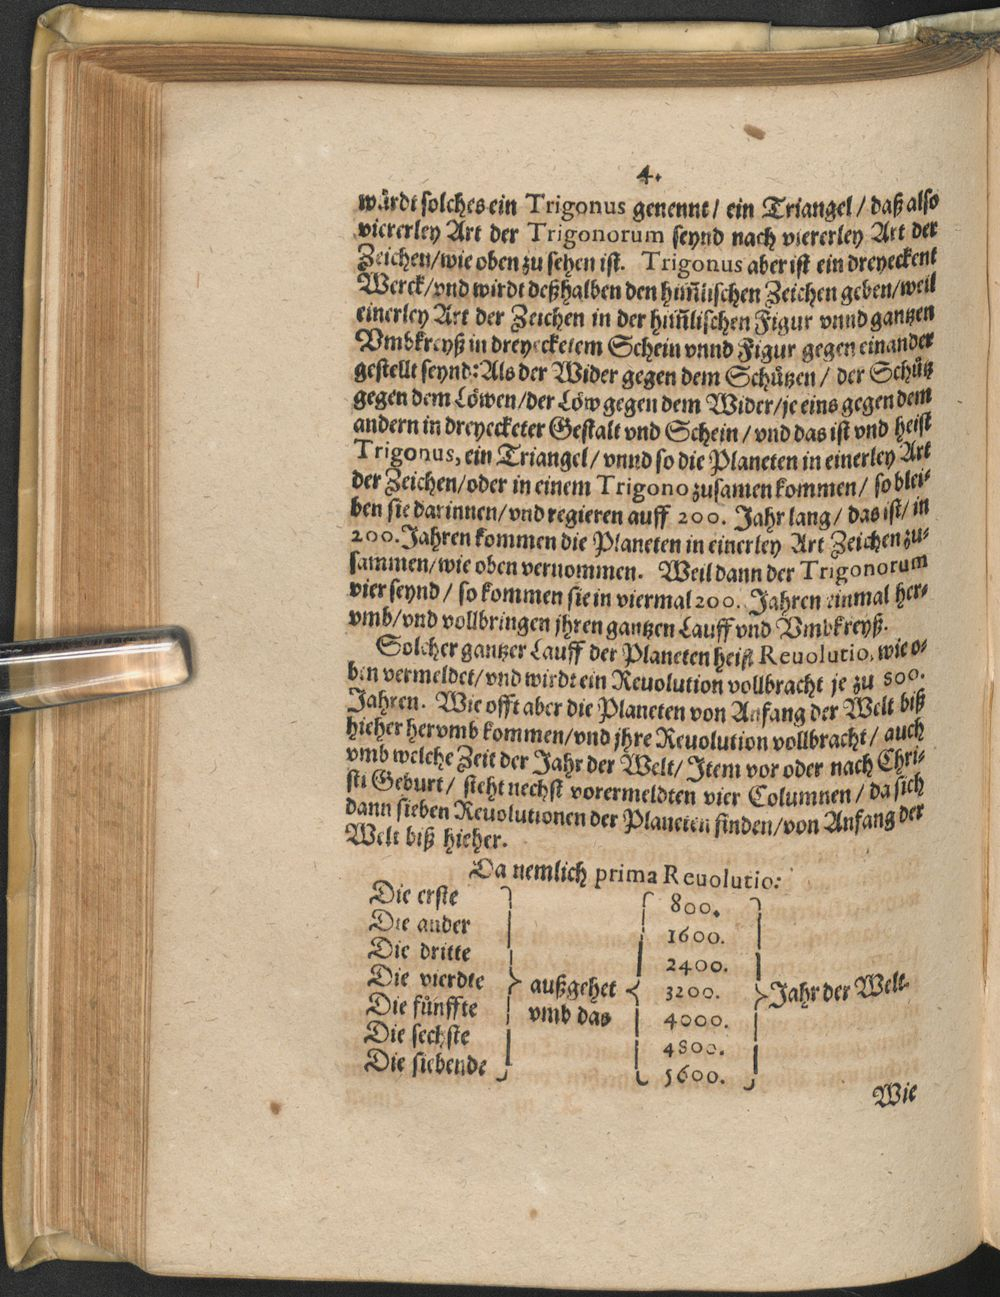 4.
wůrdt solches ein Trigonus genennt / ein Triangel / daß also
viererley Art der Trigonorum seynd nach viererley Art der
Zeichen/wie oben zu sehen ist. Trigonus aber ist ein dreyeckent
Werck/vnd wirdt deßhalben den him̃lischen Zeichen geben/weil
einerley Art der Zeichen in der him̃lischen Figur vnnd gantzen
Vmbkreyß in dreyecketem Schein vnnd Figur gegen einander
gestellt seynd: Als der Wider gegen dem Schützen / der Schütz
gegen dem Löwen/der Löw gegen dem Wider/je eins gegen dem
andern in dreyecketer Gestalt vnd Schein / vnd das ist vnd heist
Trigonus, ein Triangel/ vnnd so die Planeten in einerley Art
der Zeichen/oder in einem Trigono zusamen kommen/ so blei-
ben sie darinnen/vnd regieren auff 200. Jahr lang / das ist/ in
200. Jahren kommen die Planeten in einerley Art Zeichen zu-
sammen/wie oben vernommen. Weil dann der Trigonorum
vier seynd / so kommen sie in viermal 200. Jahren einmal her-
vmb/vnd vollbringen jhren gantzen Lauff vnd Vmbkreyß.
Solcher gantzer Lauff der Planeten heist Reuolutio, wie o-
ben vermeldet/vnd wirdt ein Reuolution vollbracht je zu 800.
Jahren. Wie offt aber die Planeten von Anfang der Welt biß
hieher hervmb kommen/vnd jhre Reuolution vollbracht / auch
vmb welche Zeit der Jahr der Welt/ Item vor oder nach Chri-
sti Geburt / steht nechst vorermeldten vier Columnen / da sich
dann sieben Reuolutionen der Planeten finden/von Anfang der
Welt biß hieher.
Da nemlich prima Reuolutio:
Die erste 800.
Die ander 1600.
Die dritte 2400.
Die vierdte außgehet 3200. Jahr der Welt.
Die fünffte vmb das 4000.
Die sechste 4800.
Die siebende 5600.
Wie